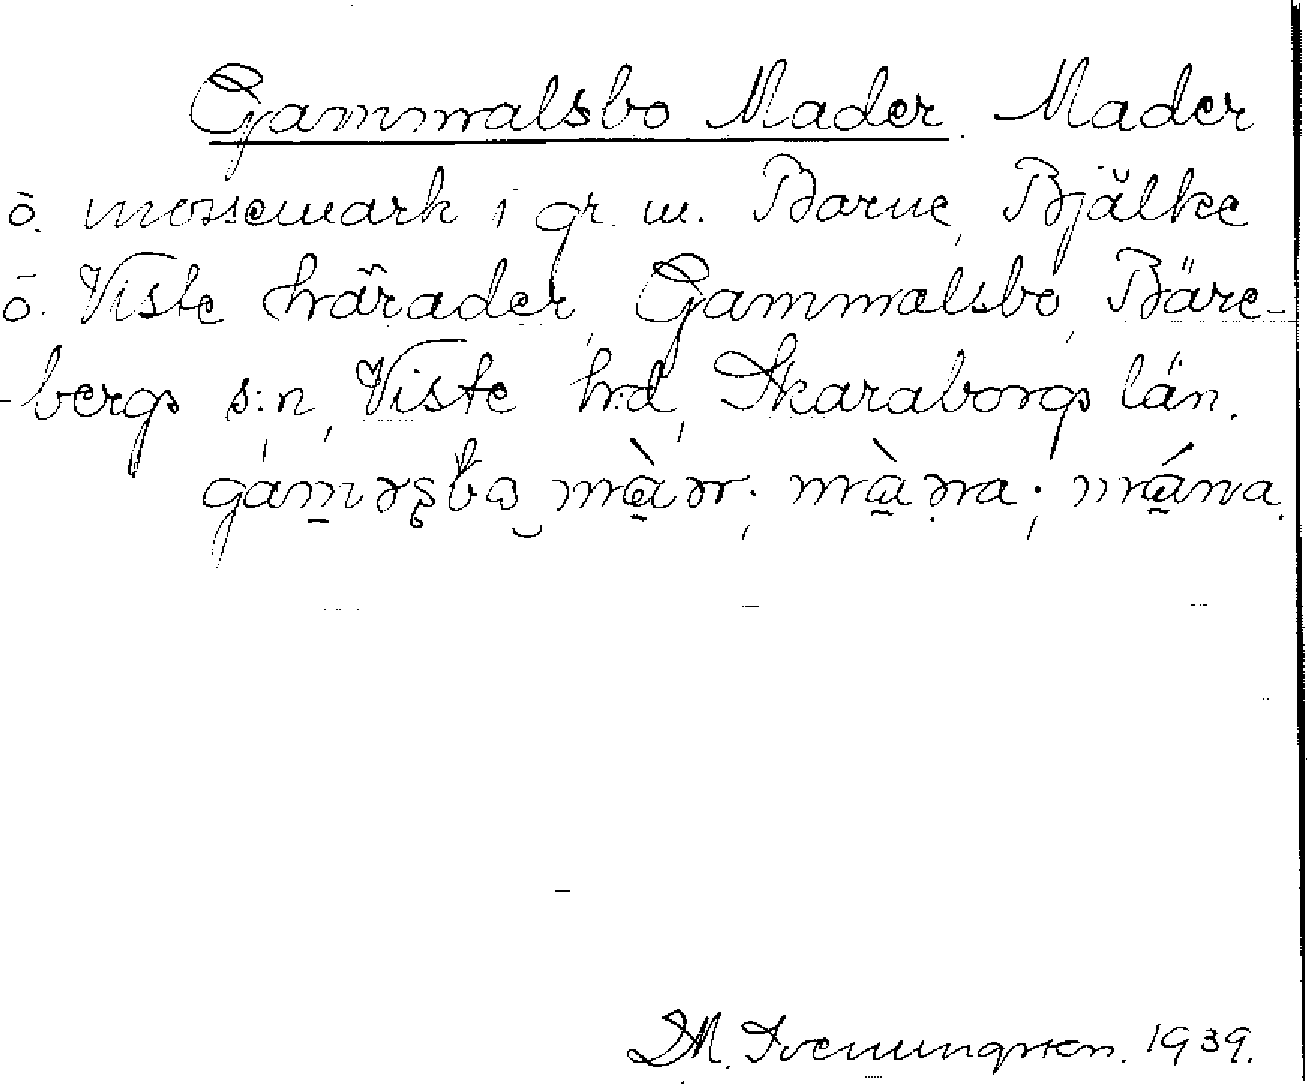 Gammalsbo Mader. Mader
o. mossemark i gr. m. Barne, Bjälke
o. Viste härader, Gammalsbo, Bäre-
-bergs s:n, Viste hrd, Skaraborgs län.
D.M. Svenungsson. 1939.